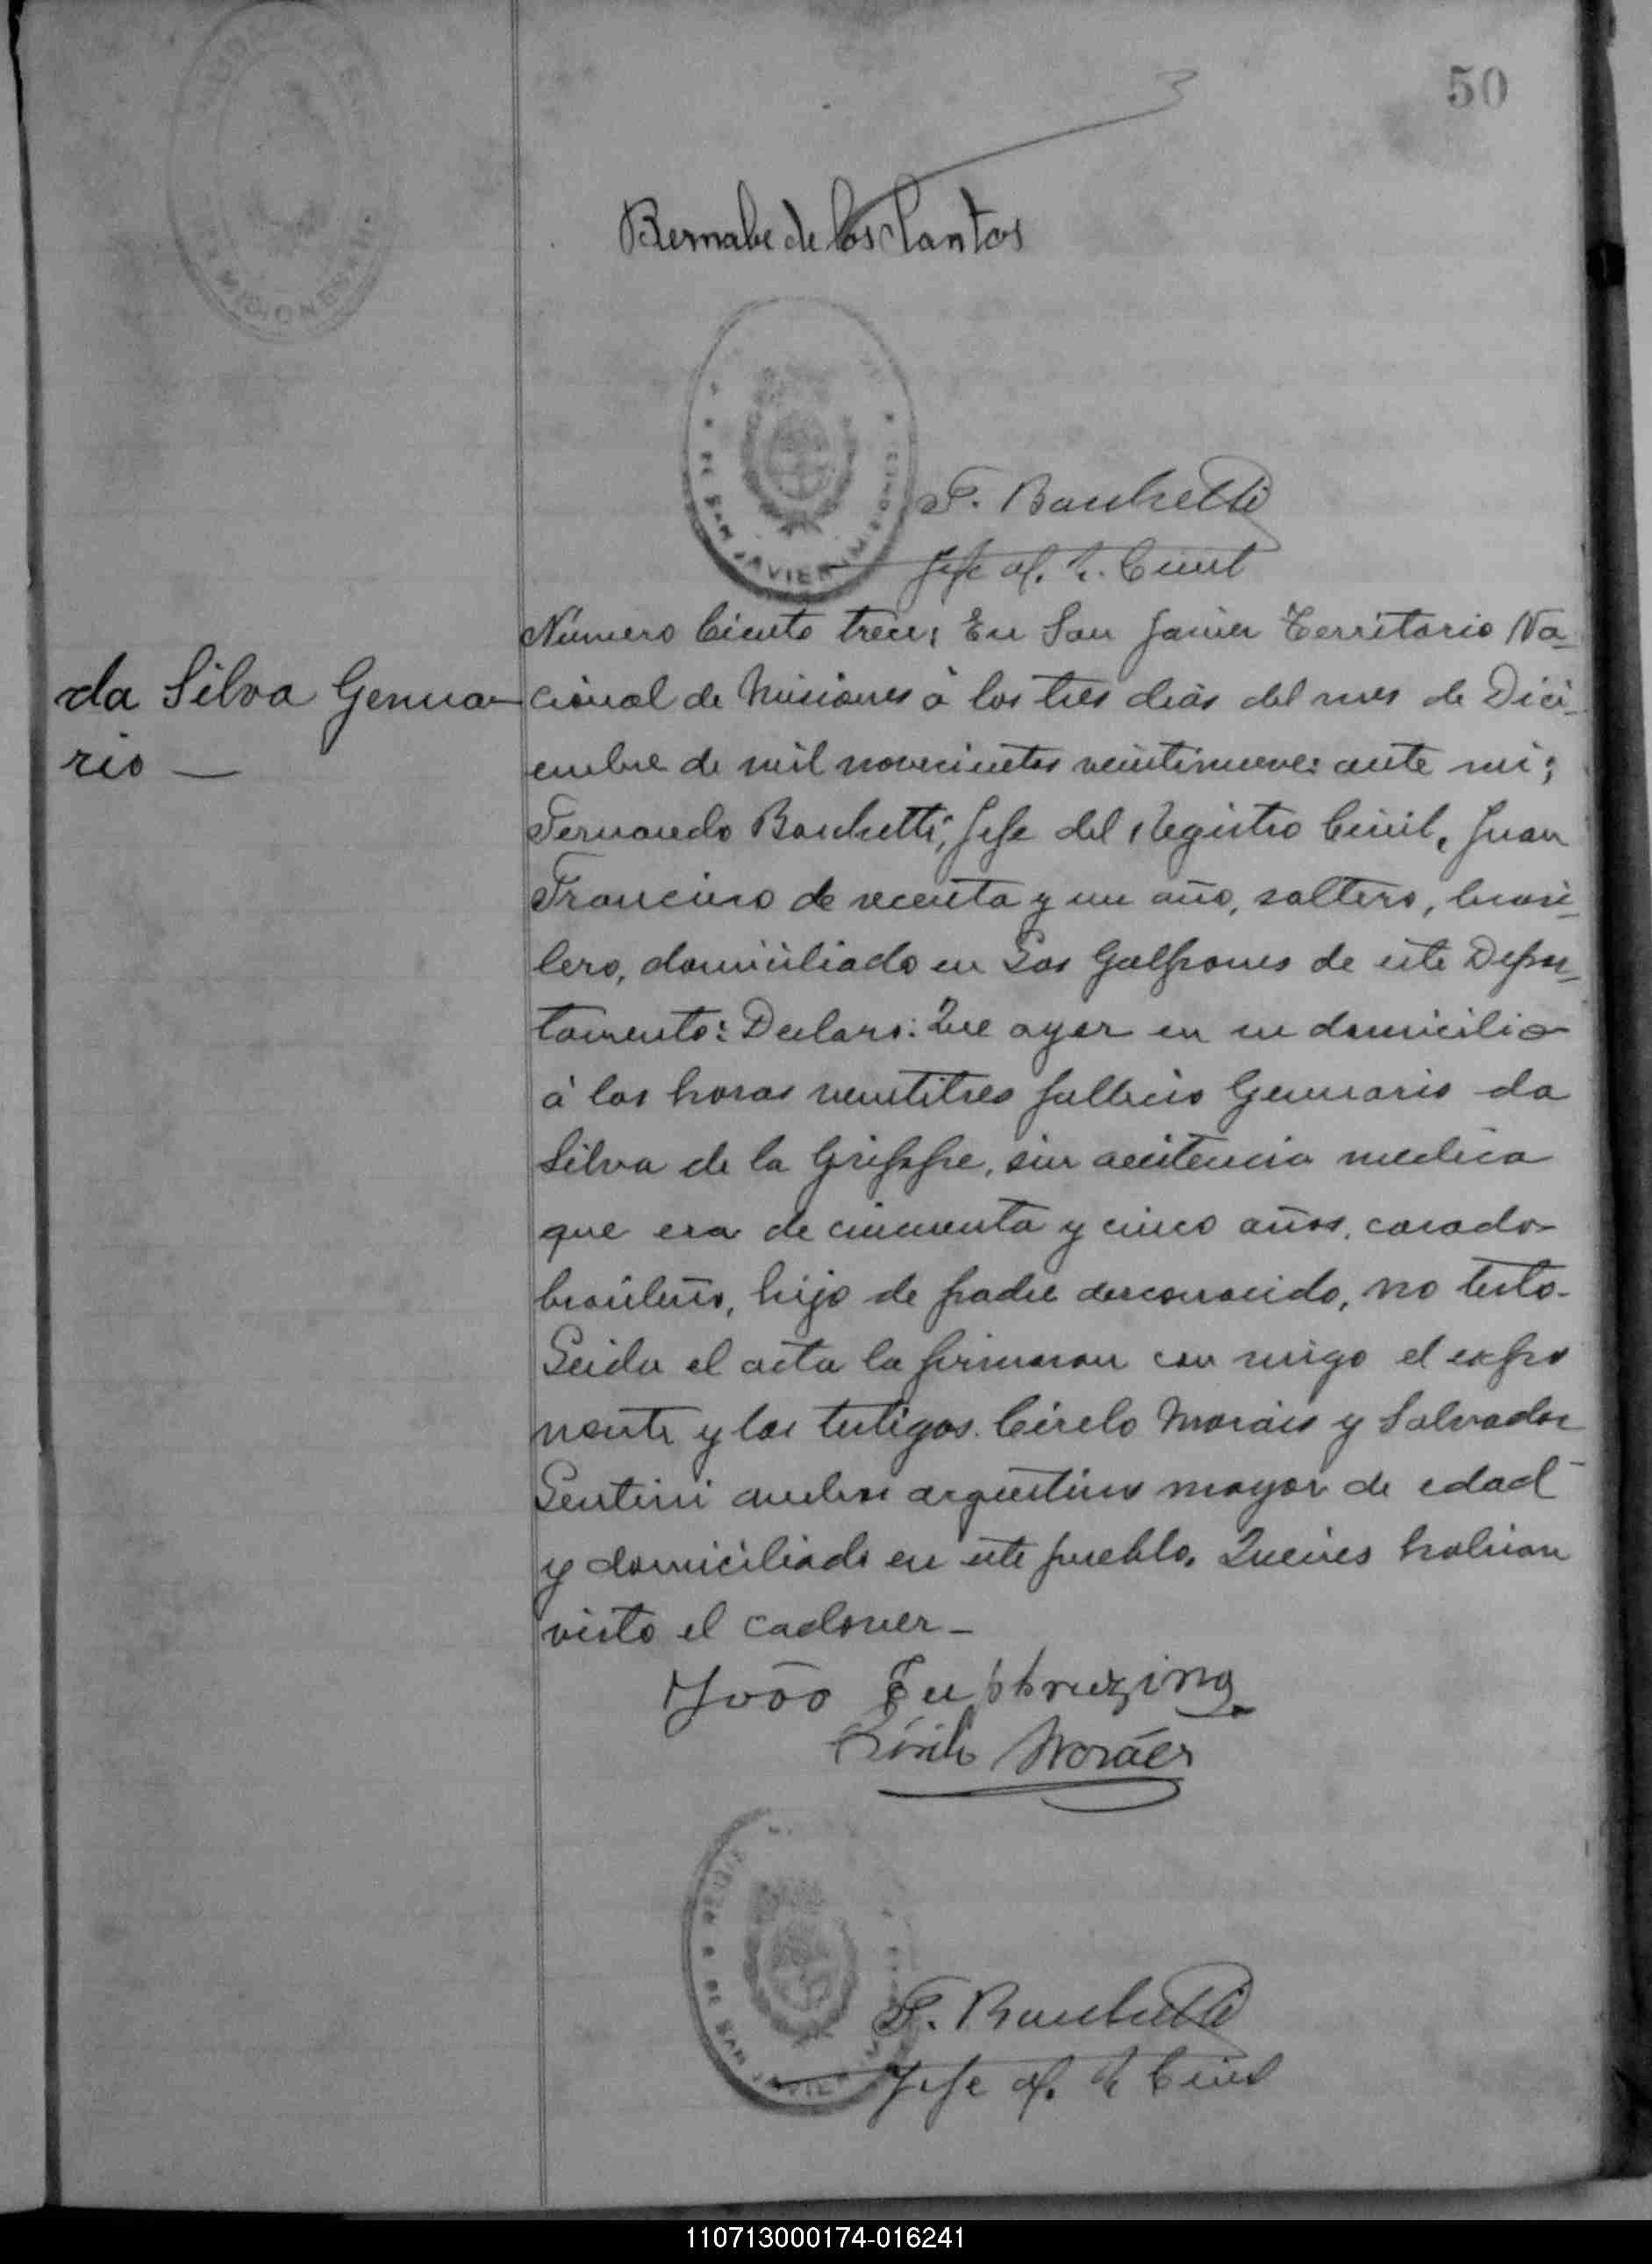 50
Bernabe de los Santos
DE SAN JAVIER (MISIONES)
F. Banchetti
Jefe del R. Civil
da Silva Genua-
rio —
Número Ciento trece: En San Javier Territorio Na-
cional de Misiones à los tres dias del mes de Dici-
embre de mil novecientos veintinueve: ante mi;
Fernando Banchetti, Jefe del Registro Civil, Juan
de secenta y un año, soltero, brasi-
lero, domiciliado en Los Galpones de este Depar-
tamento: Declaro: Que ayer en su domicilio
à las horas veintitres fallecio Genuario da
Silva de la Grippe, sin acitencia medica
que era de cincuenta y cinco años, casado
brasileño, hijo de padre desconocido, no testo-
Leida el acta la firmaron con migo el expo
nente y los testigos. Cirilo Moráis y Salvador
Sentini ambos argentino mayor de edad
y domiciliado en este pueblo. Quienes habian
visto el cadaver_
João
Cirilo Moráes
DE SAN JAVIER
F. Banchetti
Jefe del R Civil
110713000174-016241